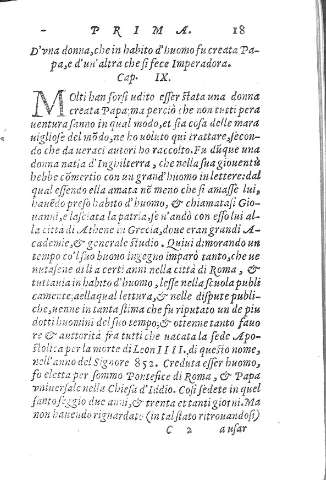 PRIMA. 18
D'vna donna, che in habito d'huomo fu creata Pa-
pa, e d'un'altra che si fece Imperadora.
Cap. IX.
MOlti han forsi udito esser stata una donna
creata Papa: ma perciò che non tutti per a
uentura sanno in qual modo, et sia cosa delle mara
uigliose del mōdo, ne ho uoluto qui trattare, secon-
do che da ueraci autori ho raccolto. Fu dūque una
donna natia d'Inghilterra, che nella sua giouentù
hebbe cōmertio con un grand'huomo in lettere: dal
qual essendo ella amata nē meno che si amasse lui,
hauēdo preso habito d'huomo, & chiamatasi Gio-
uanni, e lasciata la patria, se n'andò con esso lui al-
la città di Athene in Grecia, doue eran grandi Ac-
cademie, & generale studio. Quiui dimorando un
tempo co'l suo buono ingegno imparò tanto, che ue
nutasene di li a certi anni nella città di Roma, &
tuttauia in habito d'huomo, lesse nella scuola publi
camente, aella qual lettura, & nelle dispute publi-
che, uenne in tanta stima che fu riputato un de piu
dotti huomini del suo tempo, & ottenne tanto fauo
re & auttorità fra tutti che uacata la sede Apo-
stolica per la morte di Leon IIII. di questo nome,
nell'anno del Signore 852. Creduta esser huomo,
fo eletta per sommo Pontefice di Roma, & Papa
vniuersale nella Chiesa d'Iddio. Cosi sedete in quel
santo seggio due anni, & trenta et tanti giorni. Ma
non hauendo riguardato (in tal stato ritrouandosi)
C 2 a usar